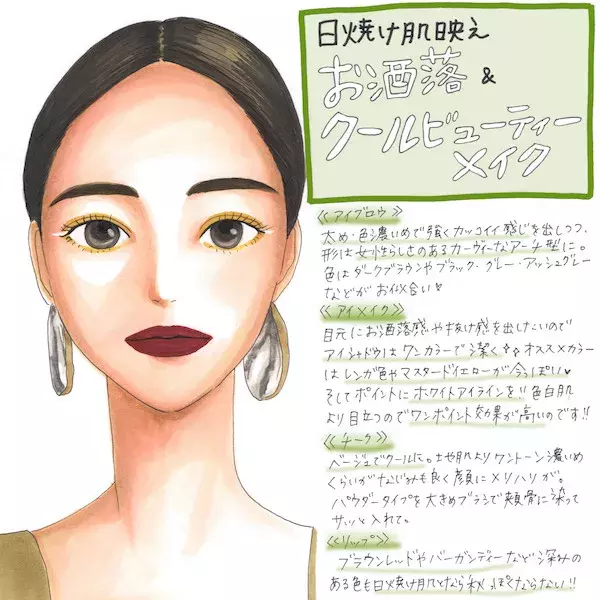 日焼け肌映え
お洒落 &
クールビューティー
メイク
《アイブロウ》
太め・色濃いめで強くカッコイイ感じを出しつつ、
形は女性らしさのあるカーヴィーなアーチ型に。
色はダークブラウンやブラック・グレー・アッシュグレー
などがお似合い♡
《アイメイク》
目元にお洒落感や抜け感を出したいので
アイシャドウはワンカラーで潔く✧✧オススメカラー
はレンガ色やマスタードイエローが今っぽい♥
そしてポイントにホワイトアイラインを!!色白肌
より目立つのでワンポイント効果が高いのです!!
《チーク》
ベージュでクールに。地肌よりワントーン濃いめ
くらいがなじみも良く顔にメリハリが。
パウダータイプを大きめブラシで頬骨に沿って
サッと入れて。
《リップ》
ブラウンレッドやバーガンディーなど深みの
ある色も日焼け肌となら秋っぽくならない!!